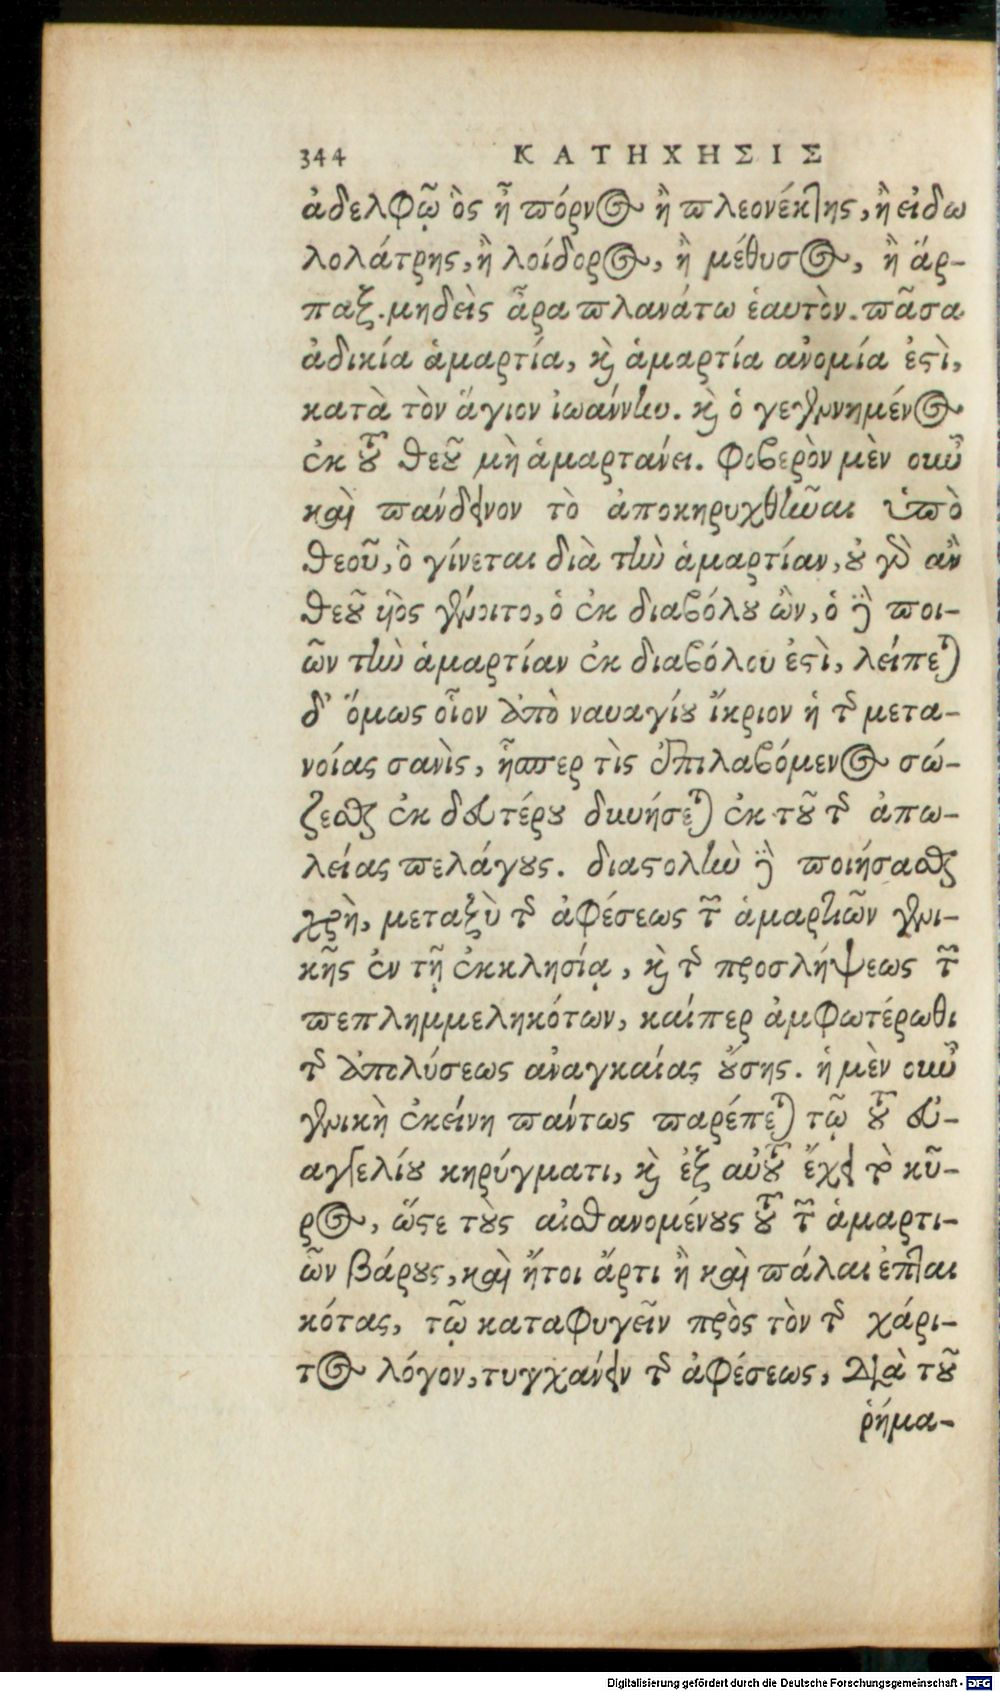 344 ΚΑΤΗΧΗΣΙΣ
ἀδελφῷ ὃς ἦ πόρνος ἢ πλεονέκτης, ἢ εἰδω
λολάτρης, ἢ λοίδορος, ἢ μέθυσος, ἢ ἅρ-
παξ. μηδεὶς ἆρα πλανάτω ἑαυτὸν. πᾶσα
ἀδικία ἁμαρτία, καὶ ἁμαρτία ἀνομία ἐστὶ,
κατὰ τὸν ἅγιον ἰωάννην. καὶ ὁ γεγεννημένος
ἐκ τοῦ θεοῦ μὴ ἁμαρτάνει. φοβερὸν μὲν οὖν
καὶ πάνδεινον τὸ ἀποκηρυχθῆναι ὑπὸ
θεοῦ, ὃ γίνεται διὰ τὴν ἁμαρτίαν, οὐ γὰρ ἂν
θεοῦ υἱὸς γένοιτο, ὁ ἐκ διαβόλου ὢν, ὁ δὲ ποι-
ῶν τὴν ἁμαρτίαν ἐκ διαβόλου ἐστὶ, λείπεται
δ' ὅμως οἷον ἀπὸ ναυαγίου ἴκριον ἡ τῆς μετα-
νοίας σανὶς, ἧσπερ τὶς ἐπιλαβόμενος σώ-
ζεσθαι ἐκ δευτέρου δυνήσεται ἐκ τοῦ τῆς ἀπω-
λείας πελάγους. διαστολὴν δὲ ποιήσασθαι
χρὴ, μεταξὺ τῆς ἀφέσεως τῶν ἁμαρτιῶν γενι-
κῆς ἐν τῇ ἐκκλησίᾳ, καὶ τῆς προσλήψεως τῶν
πεπλημμεληκότων, καίπερ ἀμφωτέρωθι
τῆς ἀπολύσεως ἀναγκαίας οὔσης. ἡ μὲν οὖν
γενικὴ ἐκείνη πάντως παρέπεται τῷ τοῦ εὐ-
αγγελίου κηρύγματι, καὶ ἐξ αὐτοῦ ἔχει τὸ κῦ-
ρος, ὥστε τοὺς αἰσθανομένους τοῦ τῶν ἁμαρτι-
ῶν βάρους, καὶ ἤτοι ἄρτι ἢ καὶ πάλαι ἐπται
κότας, τῷ καταφυγεῖν πρὸς τὸν τῆς χάρι-
τος λόγον, τυγχάνειν τῆς ἀφέσεως, διὰ τοῦ
ῥήμα-
Digitalisierung gefördert durch die Deutsche Forschungsgemeinschaft - DFG